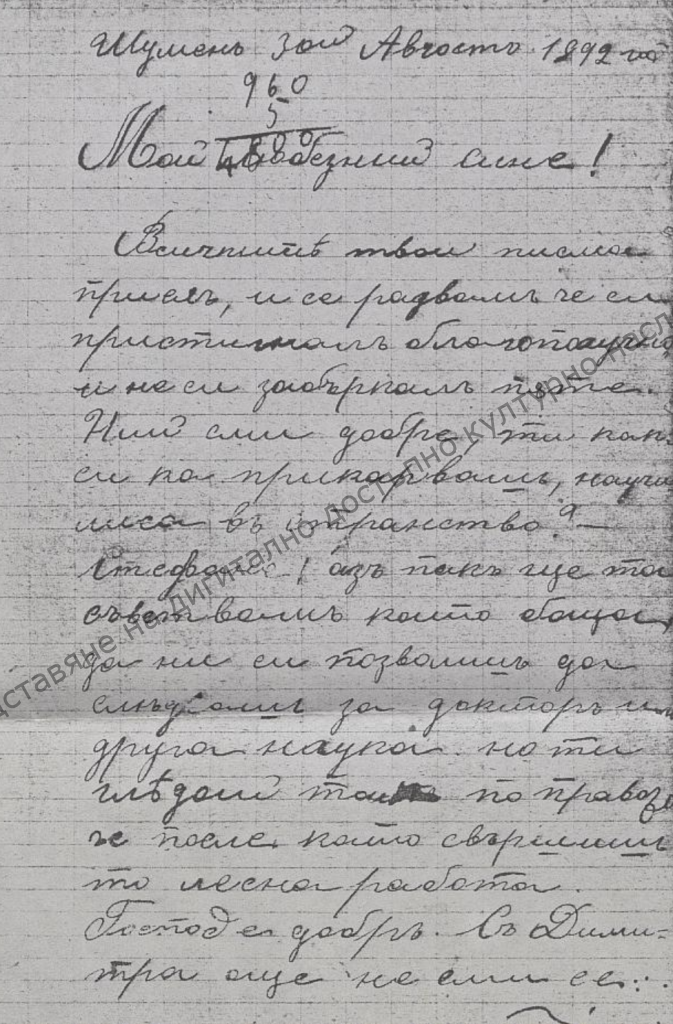 Шуменъ 3ой Августъ 1892 год
960
5
4800
Мой Любезний сине!
Всичкитѣ твои писма
приехъ, и се радвамъ че си
пристигналъ благополучно
и не си забъркалъ пътя.
Ний сми добре, ти как
си ка прикарвашъ, научи
лиса въ странство? —
Стефане! азъ пакъ ще та
съветвамъ като баща,
да ни си позволишъ да
слѣдвашъ за докторъ или
друга наука. но ти
глѣдай по право
че после като свършишъ
то лесна работа.
Господ е добръ. Съ Дими-
тра още не сми се
дставяне на дигитално достъпно културно насл